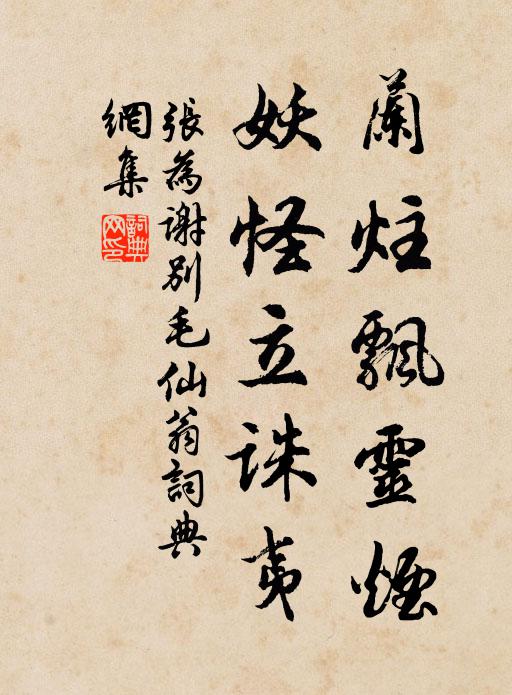 蘭炷飄靈煙
妖怪立誅夷
張為謝別毛仙翁詞典
網集
詞典
网印